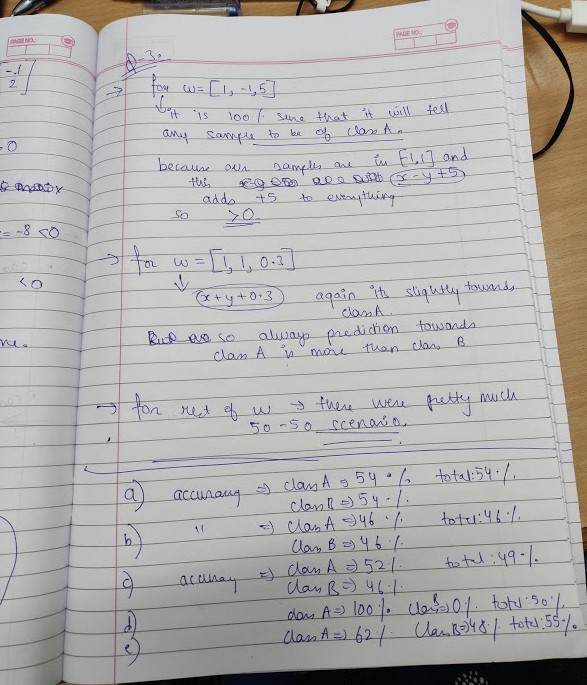 PAGE NO.:
PAGE NO.:
-1
2
0
= -8 <0
<0
me.
Q-3.
→ for w = [1, -1, 5]
↓ it is 100% sure that it will tell
any sample to be of class A.
because our samples are in [-1,1] and
this (x-y+5)
adds +5 to everything
so >0.
→ for w = [1, 1, 0.3]
↓
(x+y+0.3) again its slightly towards
class A.
so always prediction towards
class A is more than class B
→ for rest of w → there were pretty much
50-50 scenario.
a) accuracy ⇒ class A ⇒ 54% total: 54%.
class B ⇒ 54%.
b) " ⇒ class A ⇒ 46% total: 46%.
class B ⇒ 46%.
c) accuracy ⇒ class A ⇒ 52% total: 49%.
class B ⇒ 46%.
d) class A ⇒ 100% class B ⇒ 0% total: 50%.
e) class A ⇒ 62% class B ⇒ 48% total: 55%.